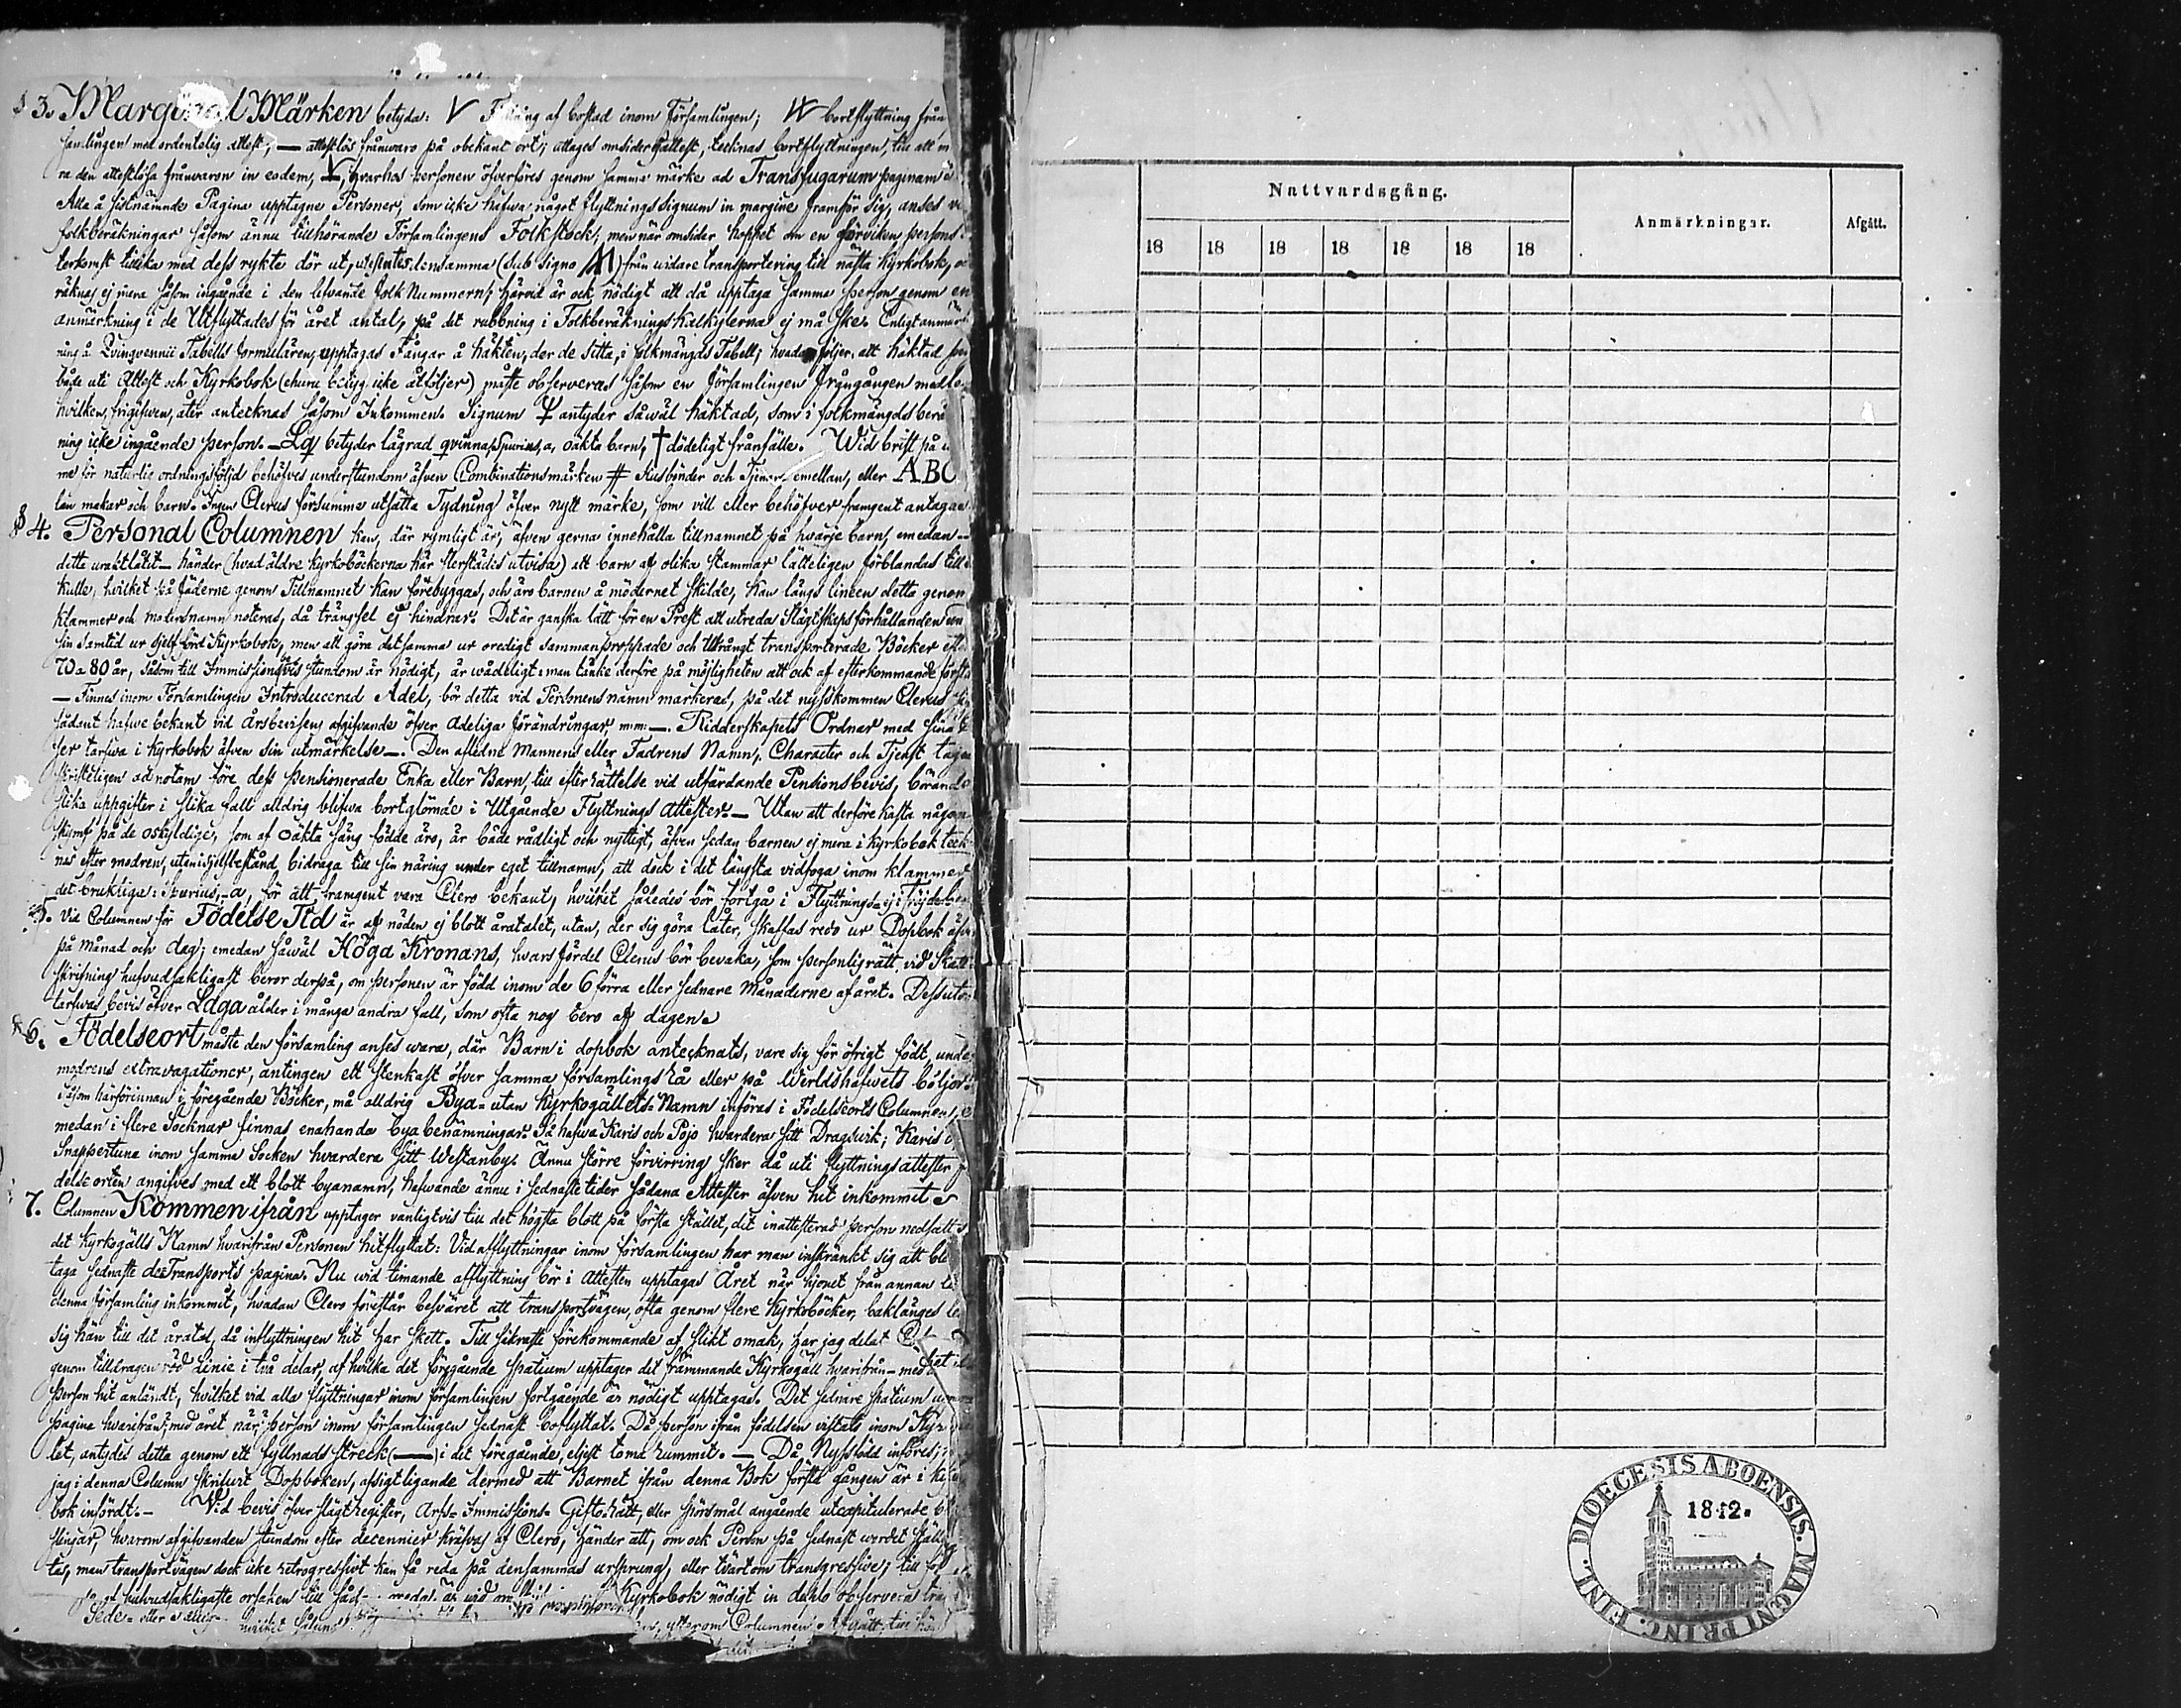 § 3. Marginal Märken betyda: V Flyttning af bostad inom Församlingen; bortflyttning från
samlingen med ordentelig attest; — attestlös frånwaro på obekant ort; uttages omsider attest, tecknas bortflyttningen, till att
ra den attestlösa frånvaron in eodem, V, hvarhos personen öfverföres genom samma märke ad Transfugarum paginam
Alla å sistnämnde Pagina upptagne Personer, som icke hafwa något flyttnings signum in margine framför sig, anses
folkberäkningar såsom ännu tillhörande Församlingens Folkstock; men när omsider hoppet om en förviken persons
terkomst tillika med dess rykte dör ut, uteslutes densamma (sub signo M) från widare transportering till nästa Kyrkobok,
räknas ej mera såsom ingående i den lefvande folk Nummern; härvid är ock nödigt att då upptaga samma person genom en
anmärkning i de Utflyttades för året antal, på det rubbning i Folkberäknings Kalkylerna ej må ske. Enligt anmärk
ning å Qvinqvennii Tabells formulären, upptagas Fångar å häkten, der de sitta, i folkmängds Tabell; hvadan följer, att häktad
både uti Attest och Kyrkobok (ehuru betyg icke åtföljer) måste observeras såsom en församlingen frångången
hvilken, frigifwen, åter antecknas såsom Inkommen. Signum Ψ antyder såwäl häktad, som i folkmängds berä
ning icke ingående person. Lq betyder lägrad qvinna, Spurius, a, oäkta barn, † dödeligt frånfälle. Wid brist på
me för naturlig ordningsföljd behöfves understundom äfven Combinationsmärken # Husbönder och Tjenare emellan, eller ABC
lan makar och barn. Ingen Clerus försumme utsätta Tydning öfver nytt märke, som vill eller behöfver framgent antagas
§ 4. Personal Columnen kan, där rymligt är, äfven gerna innehålla tillnamnet på hvarje barn, emedan —
dette uraktlåtit — händer (hvad äldre kyrkoböckerna här flerstädes utvisa) att barn af olika stammar lätteligen förblandas till
kulle, hvilket på fäderne genom Tillnamnet kan förebyggas, och äro barnen å mödernet skilde, kan längs lineen detta genom
klammer och modersnamn noteras, då trängsel ej hindrar. Det är ganska lätt för en Prest att utreda Slägtskaps förhållanden
sin samtid ur sjelf förd Kyrkobok, men att göra detsamma ur oredigt sammanproppade och trångt transporterade Böcker efter
70 a 80 år, såsom till Immissionsbevis stundom är nödigt, är wådeligt: man tänke derföre på möjligheten att ock af efterkommande förstås
— Finnes inom Församlingen Introducerad Adel, bör detta vid Personens namn markeras, på det nysskommen Clerus
sådant hafwe bekant vid årsbevisens afgifvande öfver adeliga förändringar, m:m: — Ridderskapets Ordnar med sina
ser tarfwa i kyrkobok äfven sin utmärkelse —. Den aflednes Mannens eller Fadrens Namn, Character och Tjenst tages
skrifteligen ad notam före dess pensionerade Enka eller Barn, till efterrättelse vid utfärdande Pensionsbevis, börande
slika uppgifter i slika fall alldrig blifwa bortglömde i Utgående Flyttnings attester. — Utan att derföre kasta någon
skymf på de oskyldige, som af oäkta säng födde äro, är både rådligt och nyttigt, äfven sedan barnen ej mera i kyrkobok teck
nas efter modren, utan i sjelfbestånd bidraga till sin näring under eget tillnamn, att dock i det längsta vidfoga inom klammer
det brukliga: Spurius, -a, för att framgent vara Clero bekant, hvilket således bör fortgå i Flyttnings- ej i Fräjdebe
5. Vid Columnen för Födelse Tid är af nöden ej blott åratalet, utan, der sig göra låter, skaffas redo ur Dopbok äfven
på månad och dag; emedan såwäl Höga Kronans, hvars fördel Clerus bör bevaka, som personlig rätt vid skatt-
skrifning hufvudsakligast beror derpå, om personen är född inom de 6 förra eller sednare Månaderne af året. Dessutom
tarfwas bevis öfver Laga ålder i många andra fall, som ofta nog bero af dagen.
§ 6. Födelseort måste den församling anses wara, där Barn i dopbok antecknats, vare sig för öfrigt födt, under
modrens extravagationer, antingen ett stenkast öfver samma församlings rå eller på Werldshafwets böljor.
Såsom härförinnan i föregående Böcker, må alldrig Bya- utan kyrkogällets-Namn införas i Födelseorts Columnen,
medan i flere Socknar finnas enahanda bya benämningar. Så hafwa Karis och Pojo hwardera sitt Dragswik; Karis
Snappertuna inom samma Socken hvardera sitt Westanby. Ännu större förvirring sker då uti flyttningsattester
delse orten angifves med ett blott byanamn, hafwande ännu i sednaste tider sådana Attester äfven hit inkommit.
7. Columnen Kommen ifrån upptager vanligtvis till det högsta blott på första stället, dit inattesterad person nedsatts
det kyrkogälls Namn hvarifrån Personen hitflyttat: Vid afflyttningar inom församlingen har man inskränkt sig att
taga sednaste des Transports pagina. Nu wid timande afflyttning bör i attesten upptagas Året när hjonet från annan
denna församling inkommit, hvadan Clero förestår besväret att transportvägen, ofta genom flere Kyrkoböcker, baklänges
sig hän till det åratal, då inflyttningen hit har skett. Till säkraste förekommande af slikt omak, har jag delat
genom tilldragen röd Linie i två delar, af hvilka det föregående spatium upptager det främmande Kyrkogäll hvarifrån — med
person hit anländt, hvilket vid alla flyttningar inom församlingen fortgående är nödigt upptagas. Det sednare spatium
pagina hvarifrån, med året, när, person inom församlingen sednast boflyttat. Då person ifrån födelsen vistats inom
let, antydes detta genom ett fyllnads streck (—) i det föregående, eljest toma rummet. — Då Nyssfödd införes,
jag i denna Column skrifwit Dopboken, afsigt ligande dermed att Barnet ifrån denna Bok första gången är i
bok infördt. — Vid bevis öfver slägtRegister, Arfs- Immissions- Gifto-Rätt, eller spörsmål angående utcapitulerade
hvarom afgifvanden stundom efter decennier kräfvas af Clero, händer att, om ock Person på sednast
tas, man transportvägen dock icke retrogressivt kan få reda på densammas ursprung, eller tvärtom transgressive;
hufvudsakligaste orsaken till Kyrkobok nödigt in dupplo observeras
Sede- eller Columnen Afgått

Nattvardsgång.
Anmärkningar.
Afgått.
18 18 18 18 18 18 18
DIOECESIS ABOENSIS. MAGNI PRINC. FINL.
1842.